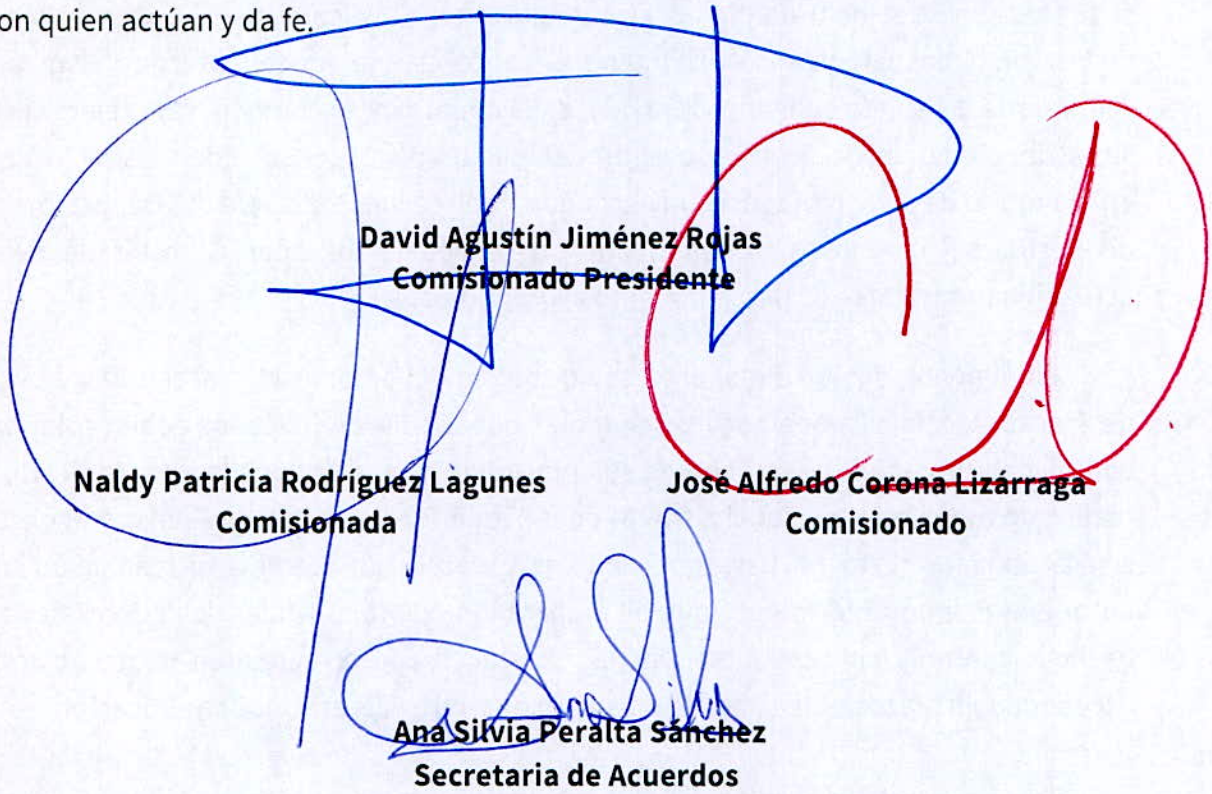 on quien actúan y da fe.
David Agustín Jiménez Rojas
Comisionado Presidente
Naldy Patricia Rodríguez Lagunes
Comisionada
José Alfredo Corona Lizárraga
Comisionado
Ana Silvia Peralta Sánchez
Secretaria de Acuerdos